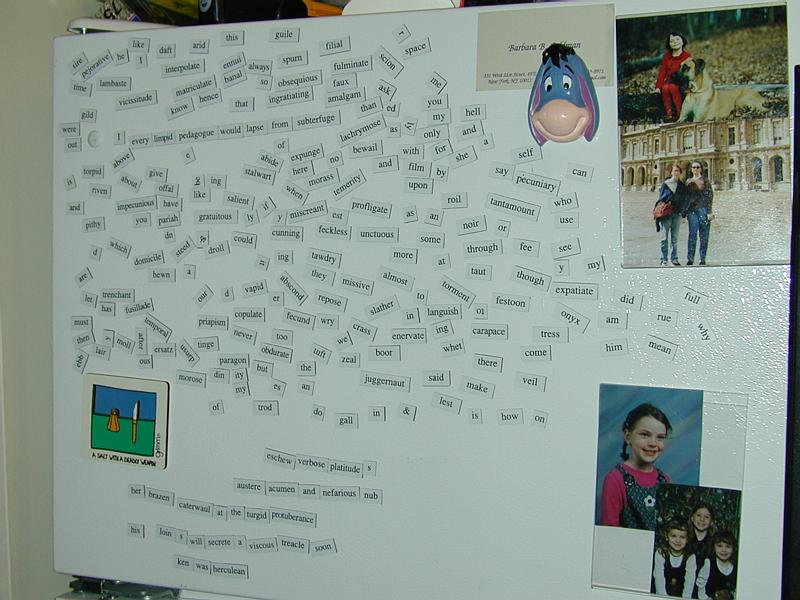 guile
this
filial
space
r
like
daft
arid
he
pejorative
sire
ennui
spurn
fulminate
scion
interpolate
banal
always
so
obsequious
faux
ask
me
time
lambaste
matriculate
vicissitude
know
hence
that
ingratiating
amalgam
than
ed
you
my
hell
gild
were
out
I every limpid pedagogue would lapse from subterfuge
lachrymose
as
ly
only
and
of
expunge
bewail
with
for
she
a
self
above
e
abide
here
no
and
film
by
say
pecuniary
can
is
torpid
about
give
ing
stalwart
morass
temerity
upon
riven
offal
like
salient
when
roil
tantamount
who
and
impecunious
have
if
profligate
as
an
use
pithy
you
pariah
gratuitous
ly
y
miscreant
est
noir
or
dn
cunning
feckless
unctuous
some
through
fee
see
d
which
steed
&
droll
could
domicile
ing
tawdry
more
at
taut
though
y
my
are
hewn
a
they
missive
almost
expatiate
let
trenchant
our
d
vapid
er
abscond
repose
to
torment
festoon
did
full
has
fusillade
slather
in
languish
onyx
am
rue
why
must
temporal
priapism
copulate
fecund
wry
crass
ing
carapace
tress
him
mean
then
y
moll
after
never
too
we
enervate
whet
come
ebb
lair
ous
ersatz
usurp
tinge
obdurate
tuft
zeal
boor
there
paragon
but
the
morose
din
ity
my
es
an
juggernaut
said
make
veil
of
trod
do
gall
in
&
lest
is
how
on
A SALT WITH A DEADLY WEAPON
eschew verbose platitude s
austere acumen and nefarious nub
her brazen caterwaul at the turgid protuberance
his loin s will secrete a viscous treacle soon
ken was herculean